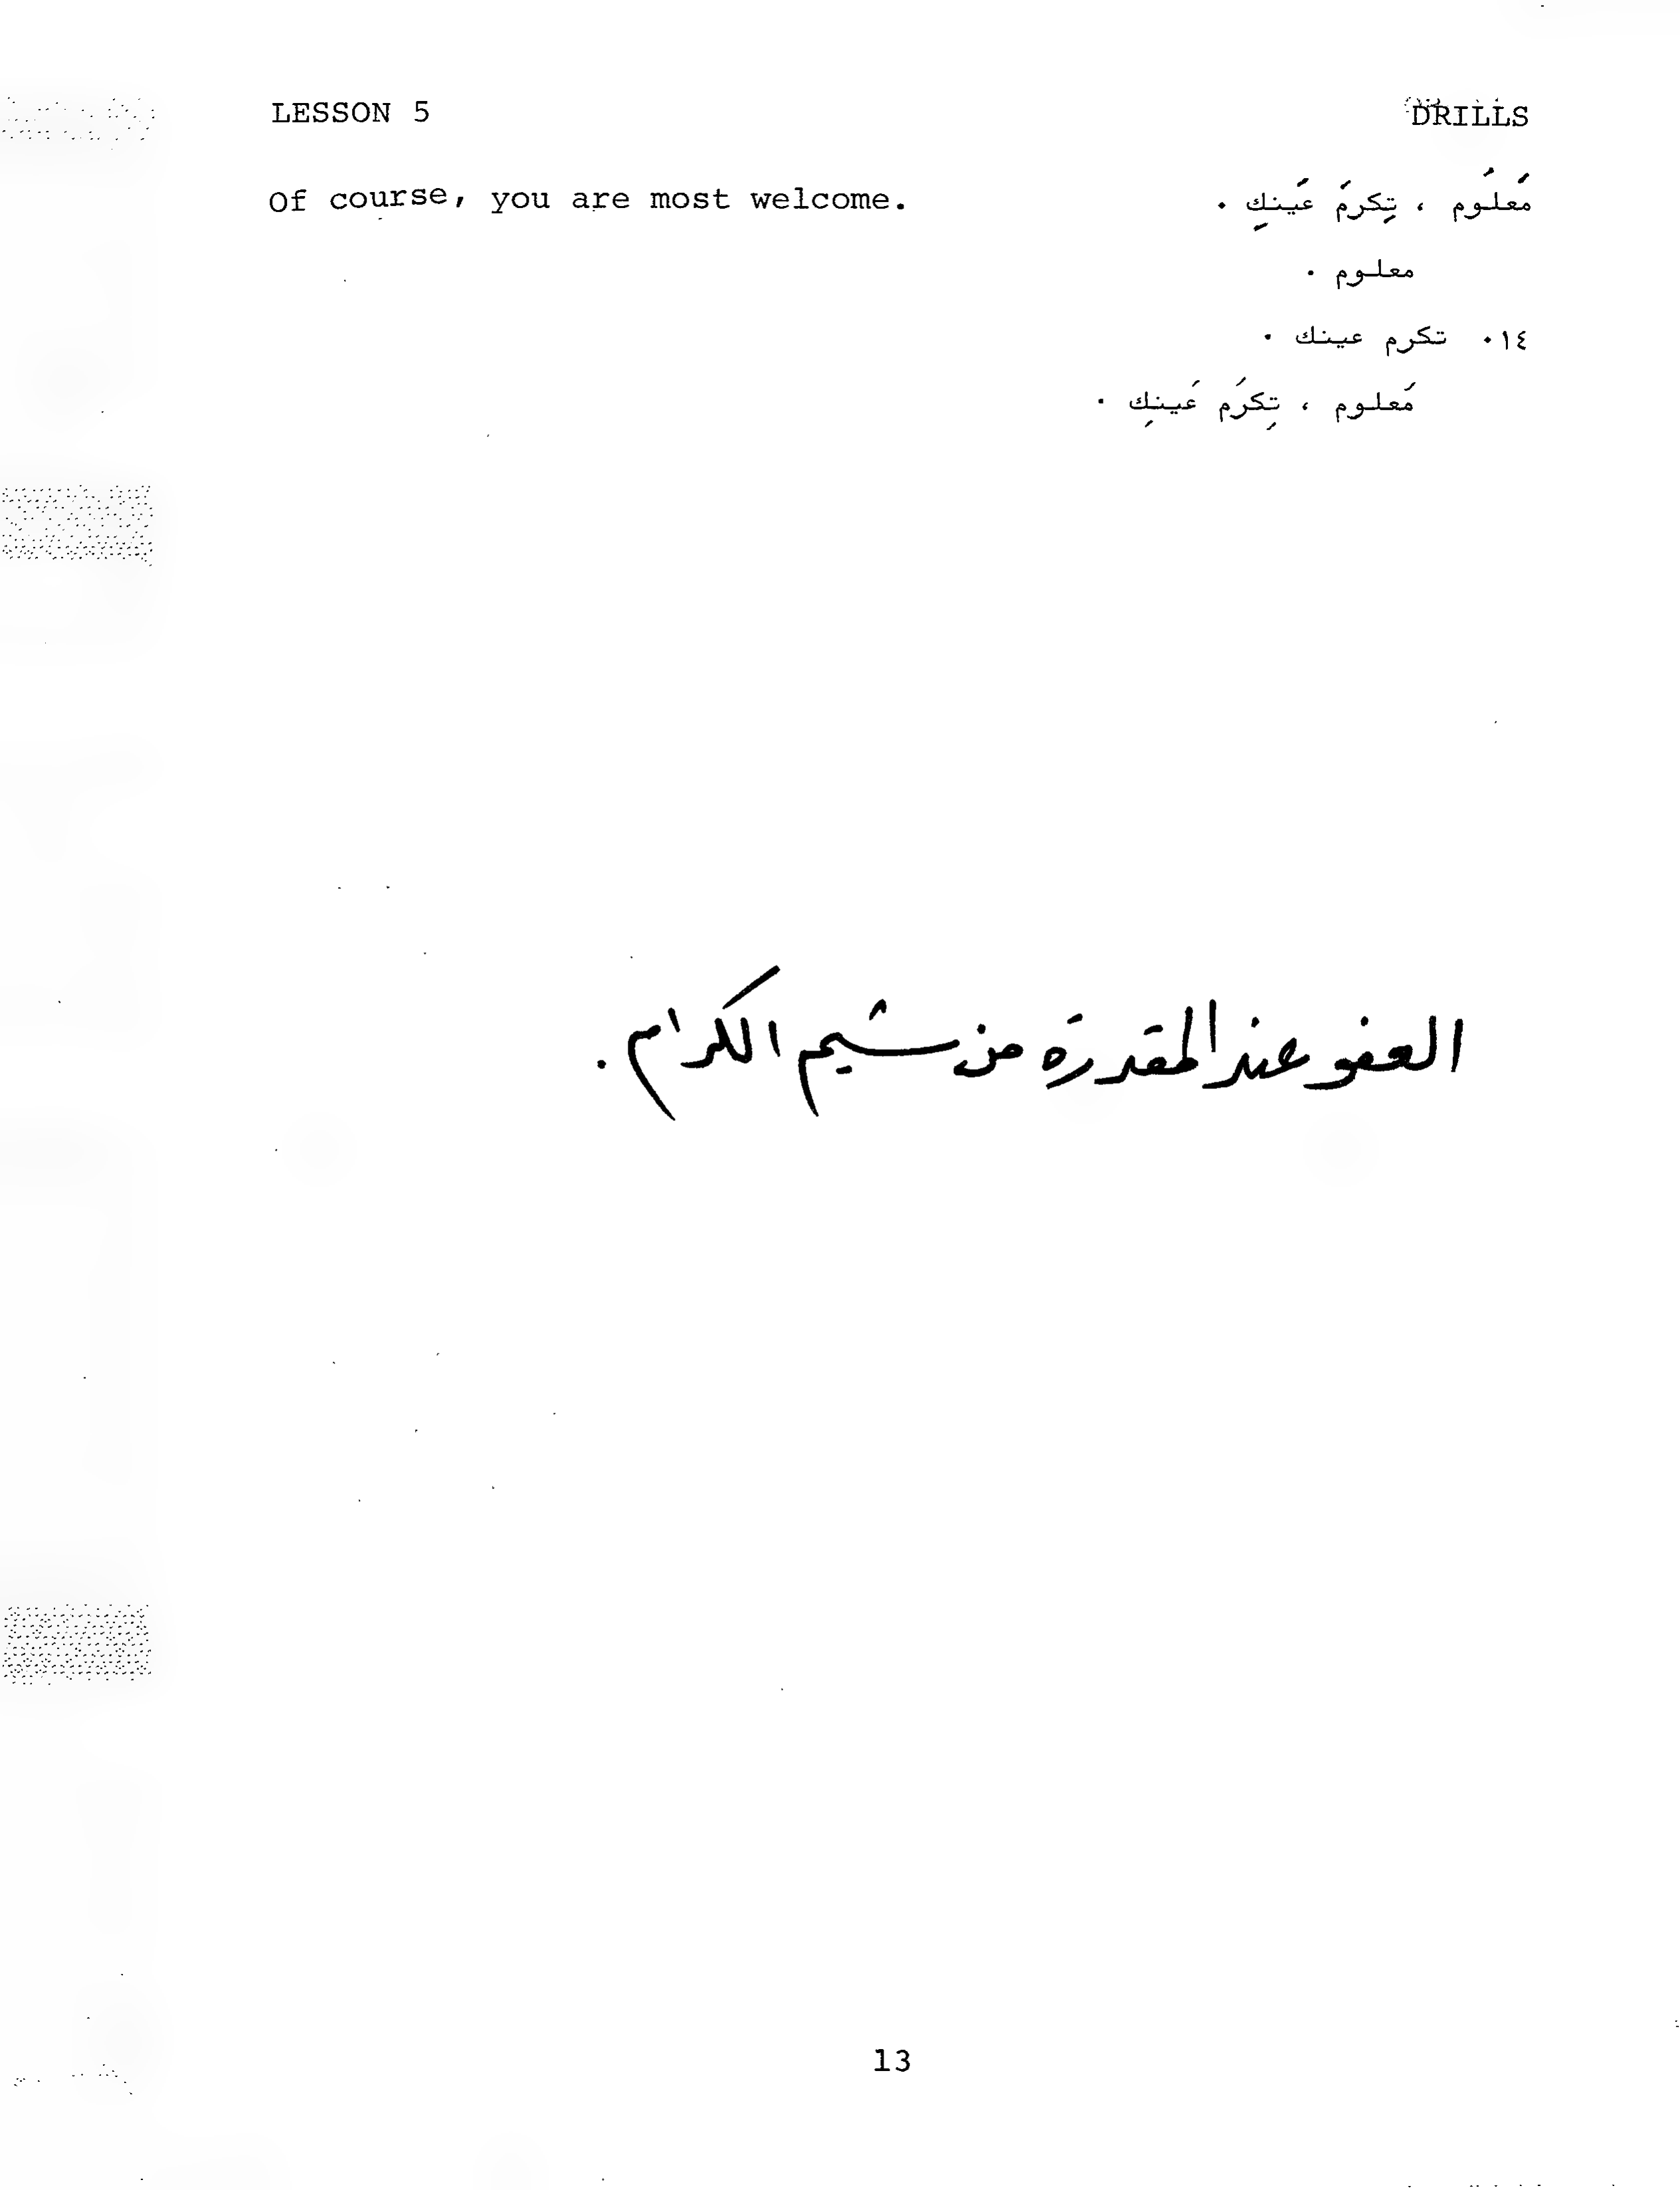 LESSON 5 DRILLS
Of course, you are most welcome. مَعلُوم ، تِكرَم عَينِك .
معلوم .
١٤. تكرم عينك .
مَعلوم ، تِكرَم عَينِك .
العفو عند المقدرة من شيم الكرام .
13